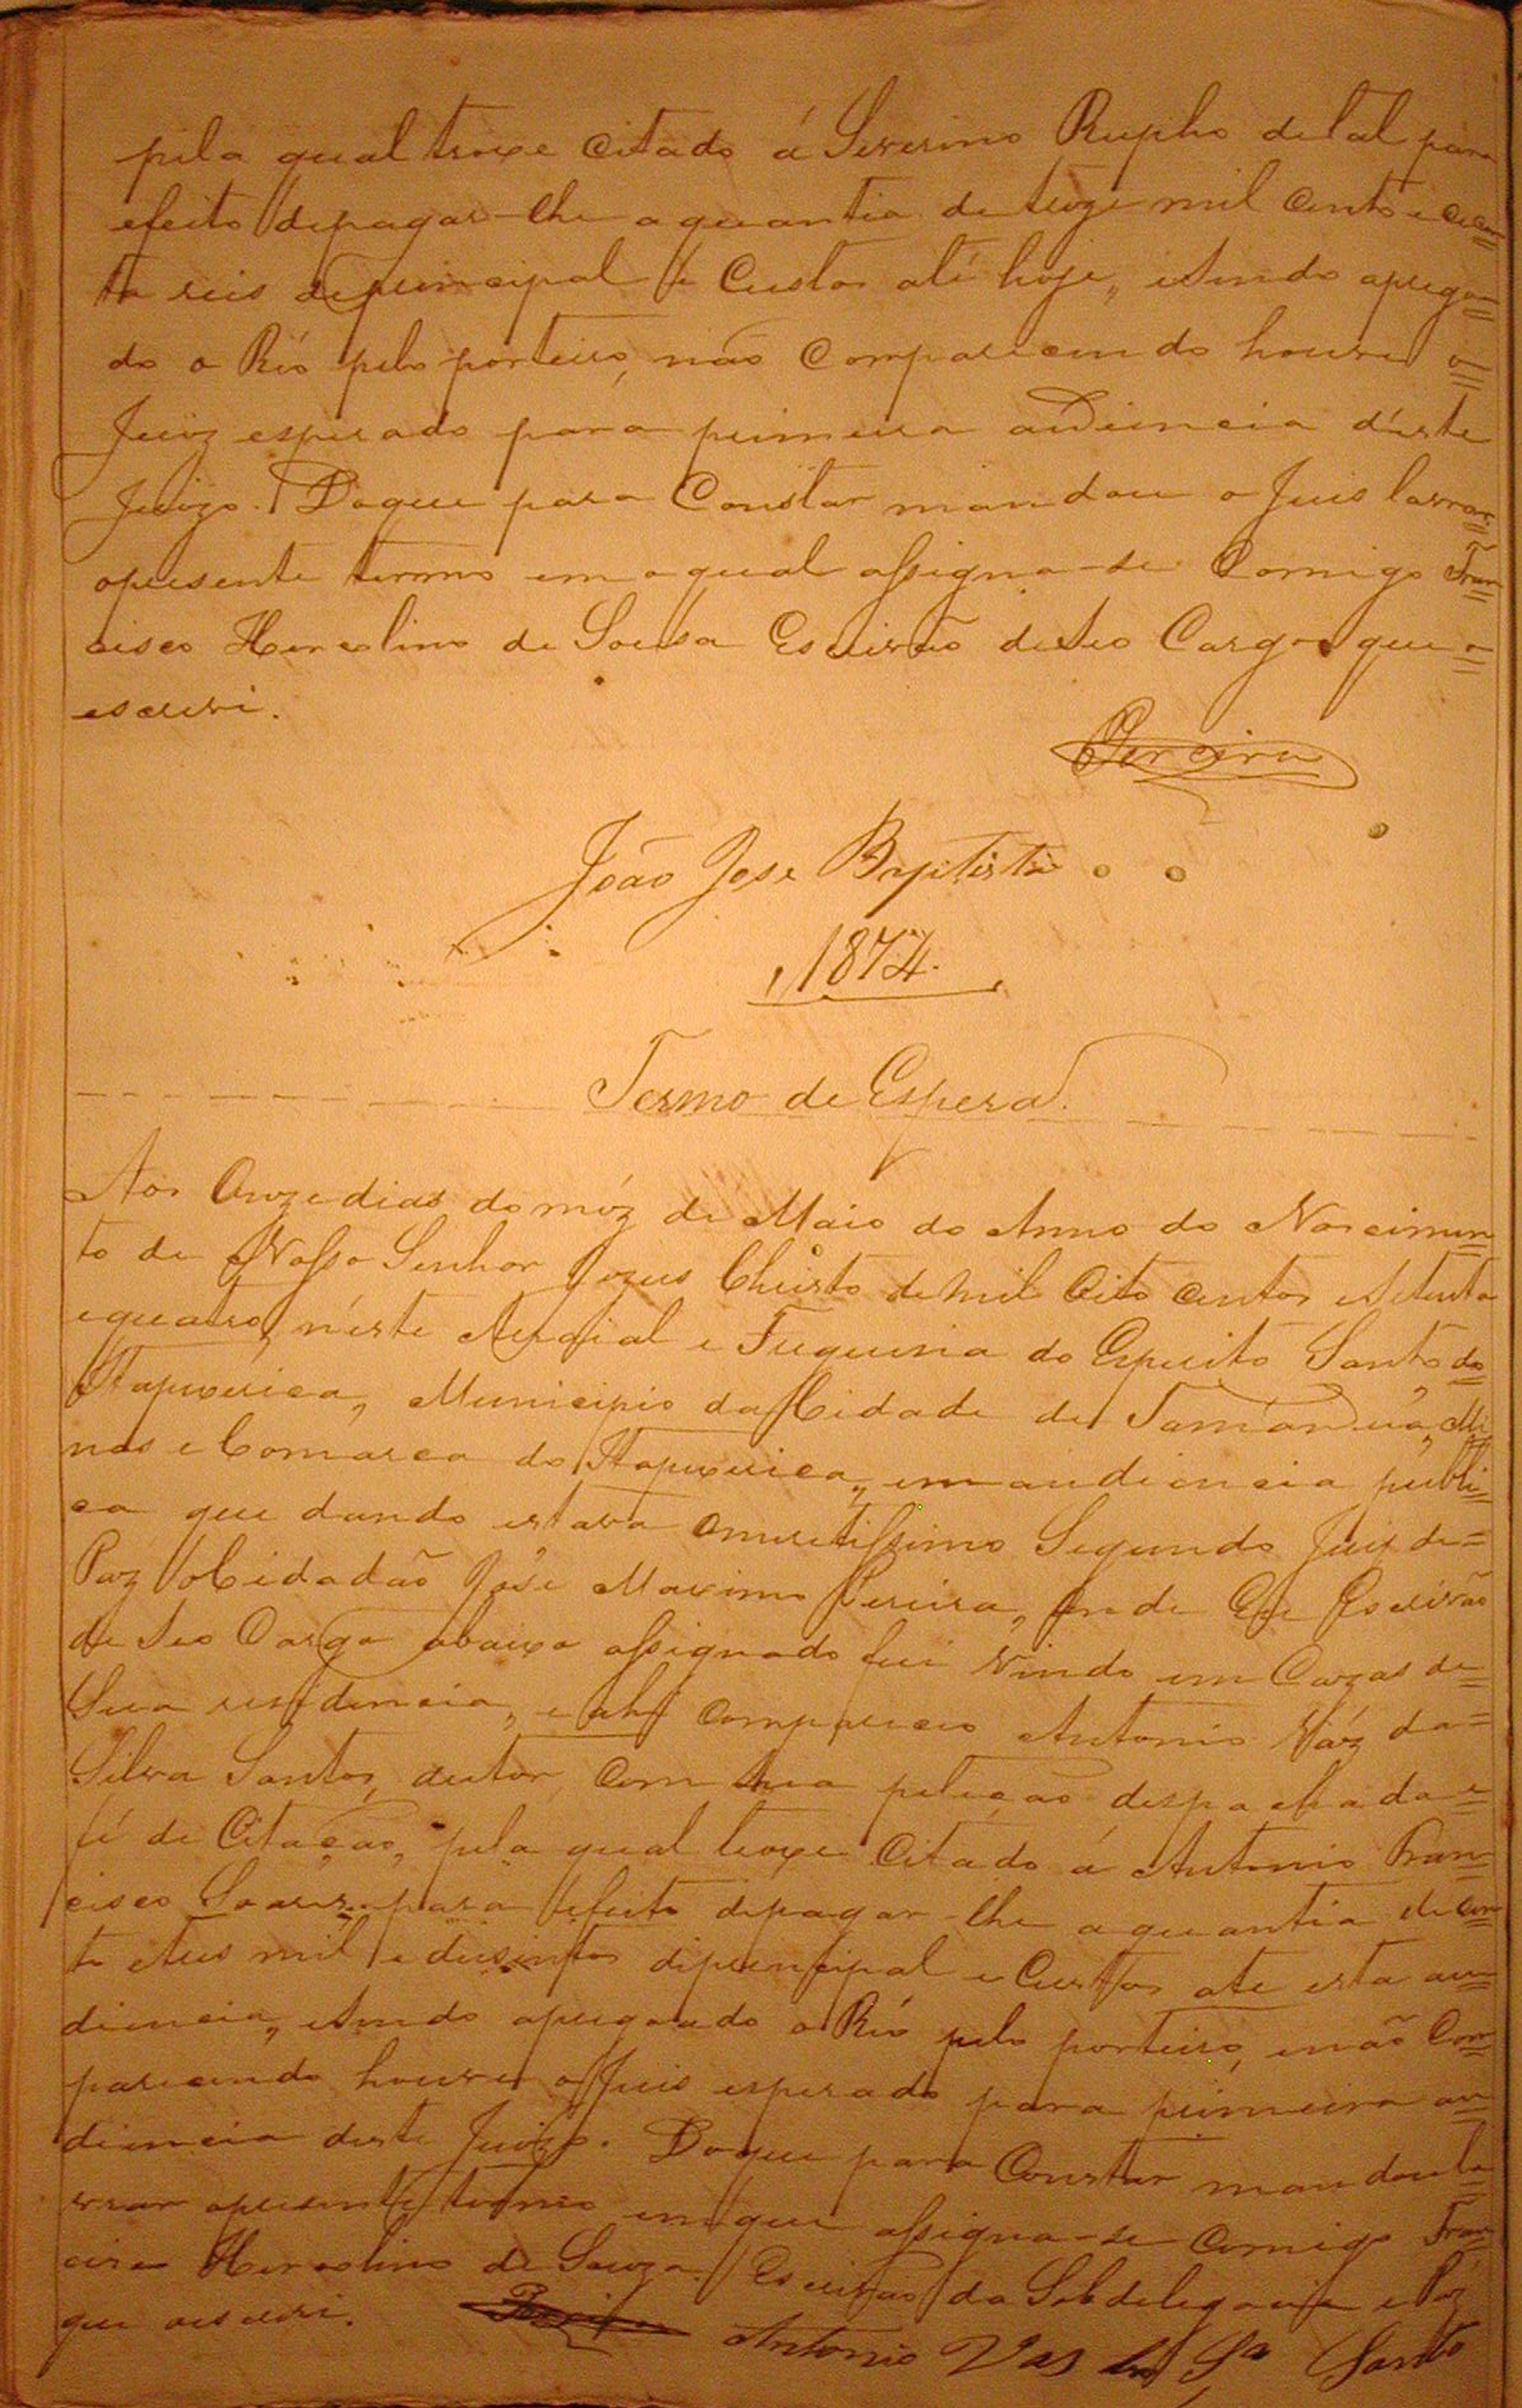 pela qual troxe Citado á Severino Rupho de tal para
efeito de pagar-lhe a quantia de treze mil cento e
ta reis de principal e Custas até hoje, e sendo aprega=
do o Réo pelo porteiro, não Comparecendo houve o=
Juiz esperado para primeira audiencia d'éste
Juizo. Do que para Constar mandou o Juis lavrar=
opresente termo em o qual assigna-se Comigo Fran=
cisco Hercolino de Sousa Escrivão de seo Cargo que o=
escrivi.
Pereira
João Jose Baptista
1874.
Termo de Espera.
Aos Onze dias do méz de Maio do Anno do Nascimen=
to de Nosso Senhor Jozus Christo de mil Oito centos e Setenta
e quatro, néste Arraial e Freguezia do Espirito Santo do
Itapixirica, Municipio da Cidade de Tamanduá, Mi=
nas e Comarca do Itapixirica, em audiencia publi=
ca que dando estava Omeretissimo Segundo Juiz de=
Paz oCidadão José Maximo Pereira, Onde Eu Escrivão
de Seo Cargo abaixo assignado fui Vindo em Cazas de=
Sua residencia, e ahi Compareceo Antonio Váz da=
Silva Santos, autor, Com sua petição despachada e=
fé de Citação, pela qual troxe Citado á Antonio Fran=
cisco Soares para efeito de pagar-lhe a quantia de cen=
to e seis mil e dusentos de principal e Custas ate esta au=
diencia, e sendo apregoado o Réo pelo porteiro, e não Com=
parecendo houve o Juis esperado para primeira au=
diencia deste Juizo. Do que para Constar mandou la=
vrar opresente termo em que assigna-se Comigo Fran=
cisco Hercolino de Souza Escrivão da Subdelegacia e Paz
que oescrivi. Antonio Vas da Sa Santos